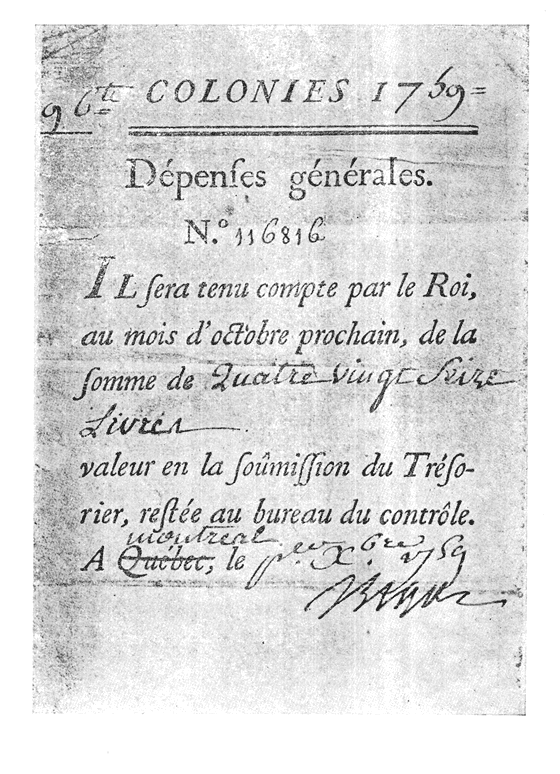 96ᵗᵗ COLONIES 1759=
Dépenſes générales.
N.º 116816
IL ſera tenu compte par le Roi,
au mois d'octobre prochain, de la
ſomme de Quatre vingt Seize
Livres
valeur en la ſoûmiſſion du Tréſo-
rier, reſtée au bureau du contrôle.
montreal
A Québec, le p.ʳ X.ᵇʳᵉ 1759
Bigot